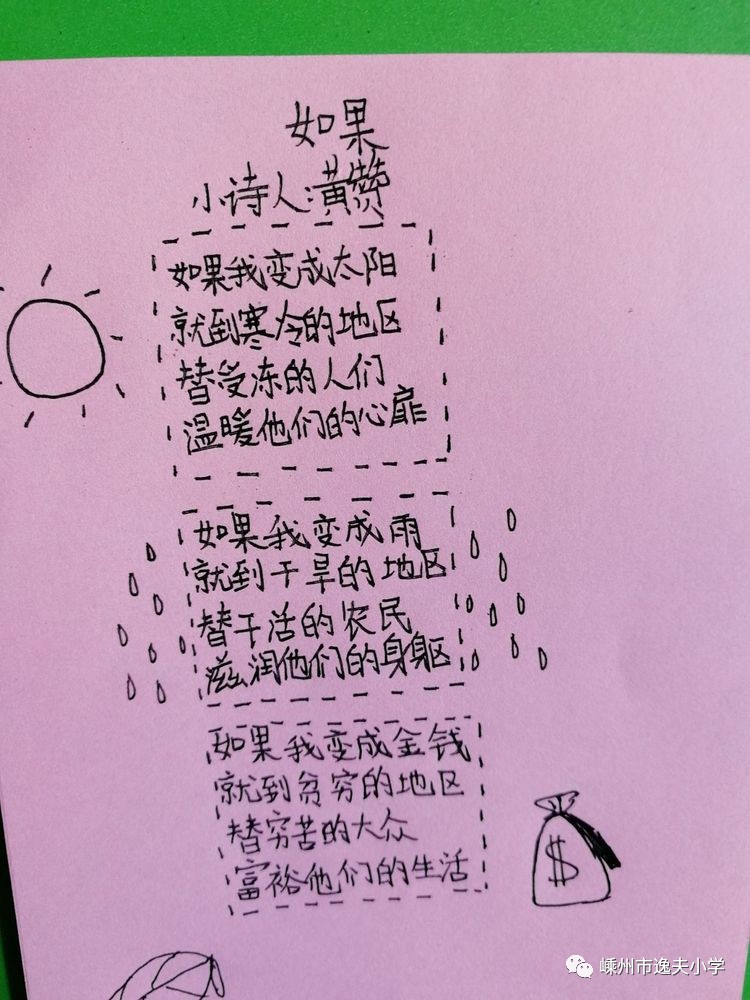 如果
小诗人:黄赞
如果我变成太阳
就到寒冷的地区
替受冻的人们
温暖他们的心扉
如果我变成雨
就到干旱的地区
替干活的农民
滋润他们的身躯
如果我变成金钱
就到贫穷的地区
替穷苦的大众
富裕他们的生活
$
嵊州市逸夫小学